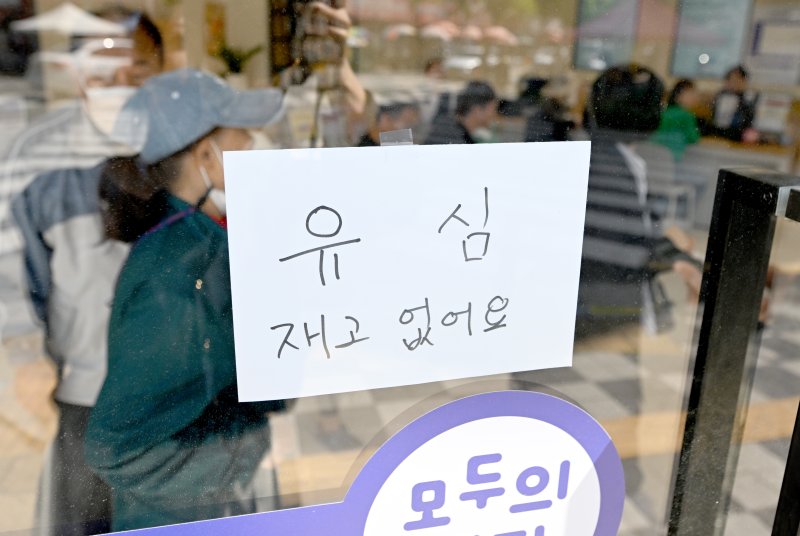 유 심
재고 없어요
모두의